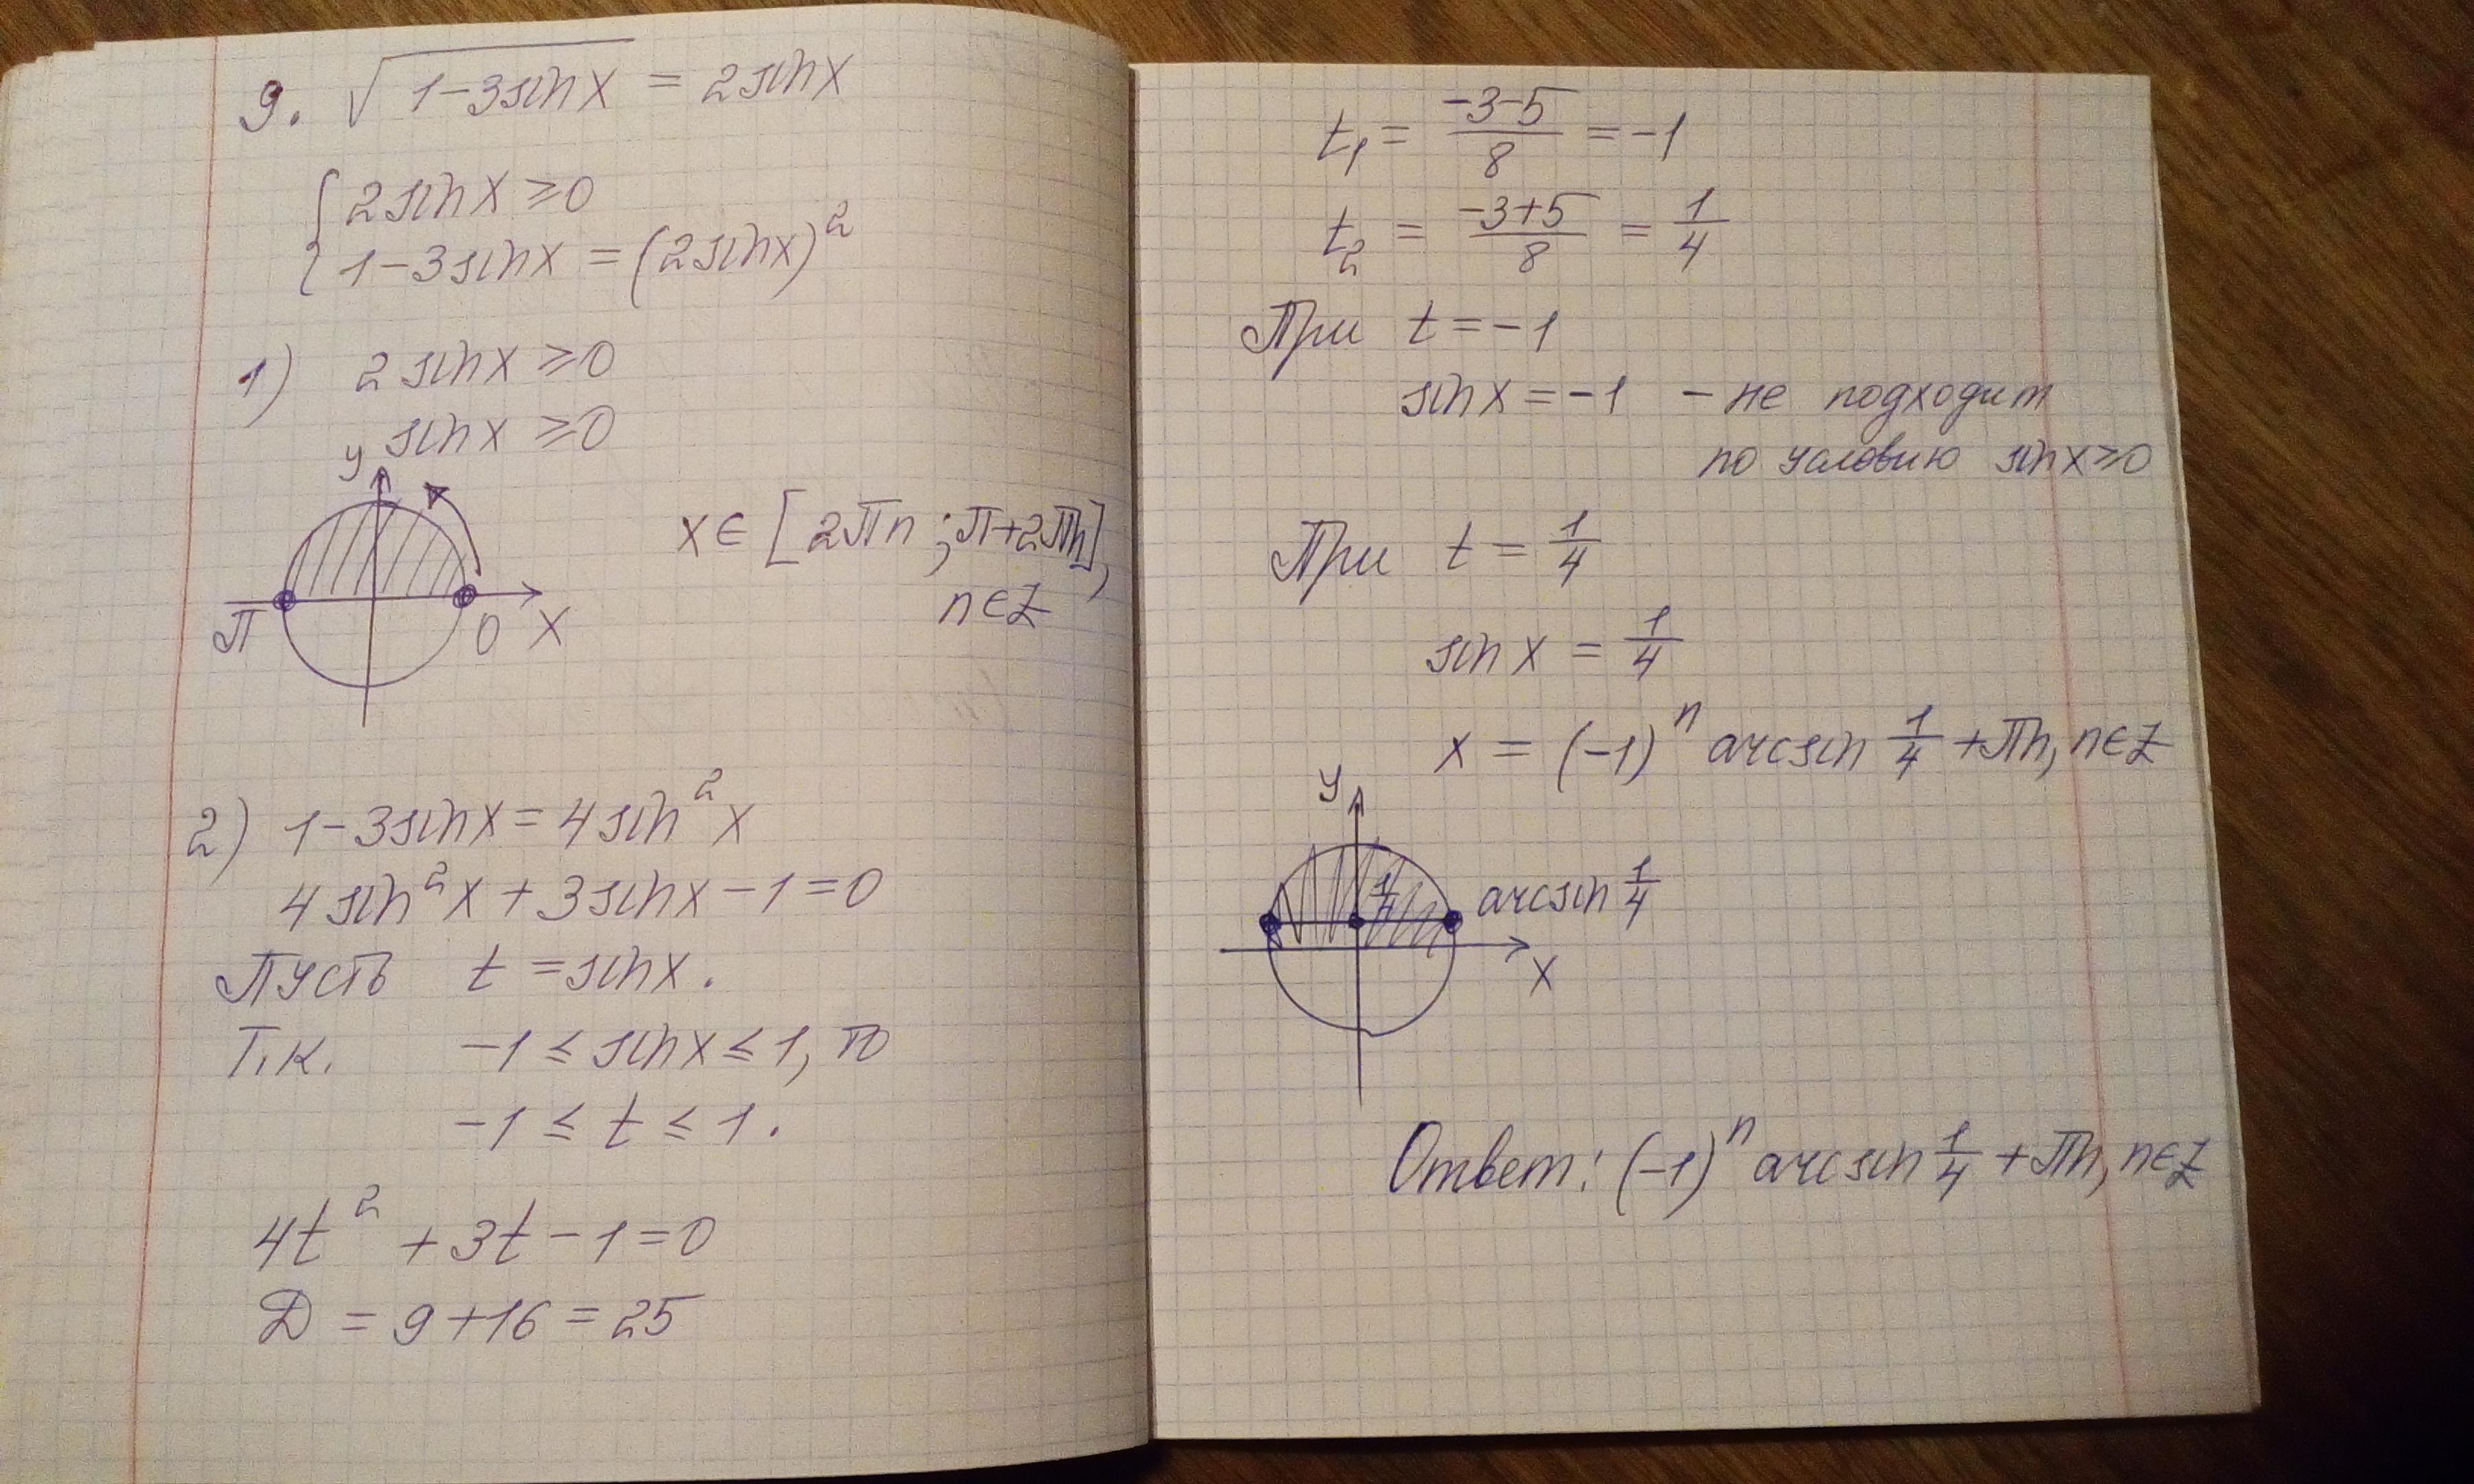 9. √(1-3sinx) = 2sinx
{ 2sinx ≥ 0
1-3sinx = (2sinx)²
1) 2sinx ≥ 0
sinx ≥ 0
y
x ∈ [2πn ; π+2πn],
n ∈ Z
π 0 x
2) 1-3sinx = 4sin²x
4sin²x + 3sinx - 1 = 0
Пусть t = sinx.
Т.к. -1 ≤ sinx ≤ 1, то
-1 ≤ t ≤ 1.
4t² + 3t - 1 = 0
D = 9+16 = 25
t₁ = (-3-5)/8 = -1
t₂ = (-3+5)/8 = 1/4
При t = -1
sinx = -1 - не подходит
по условию sinx ≥ 0
При t = 1/4
sinx = 1/4
x = (-1)ⁿ arcsin 1/4 + πn, n ∈ Z
y
1/4 arcsin 1/4
x
Ответ: (-1)ⁿ arcsin 1/4 + πn, n ∈ Z